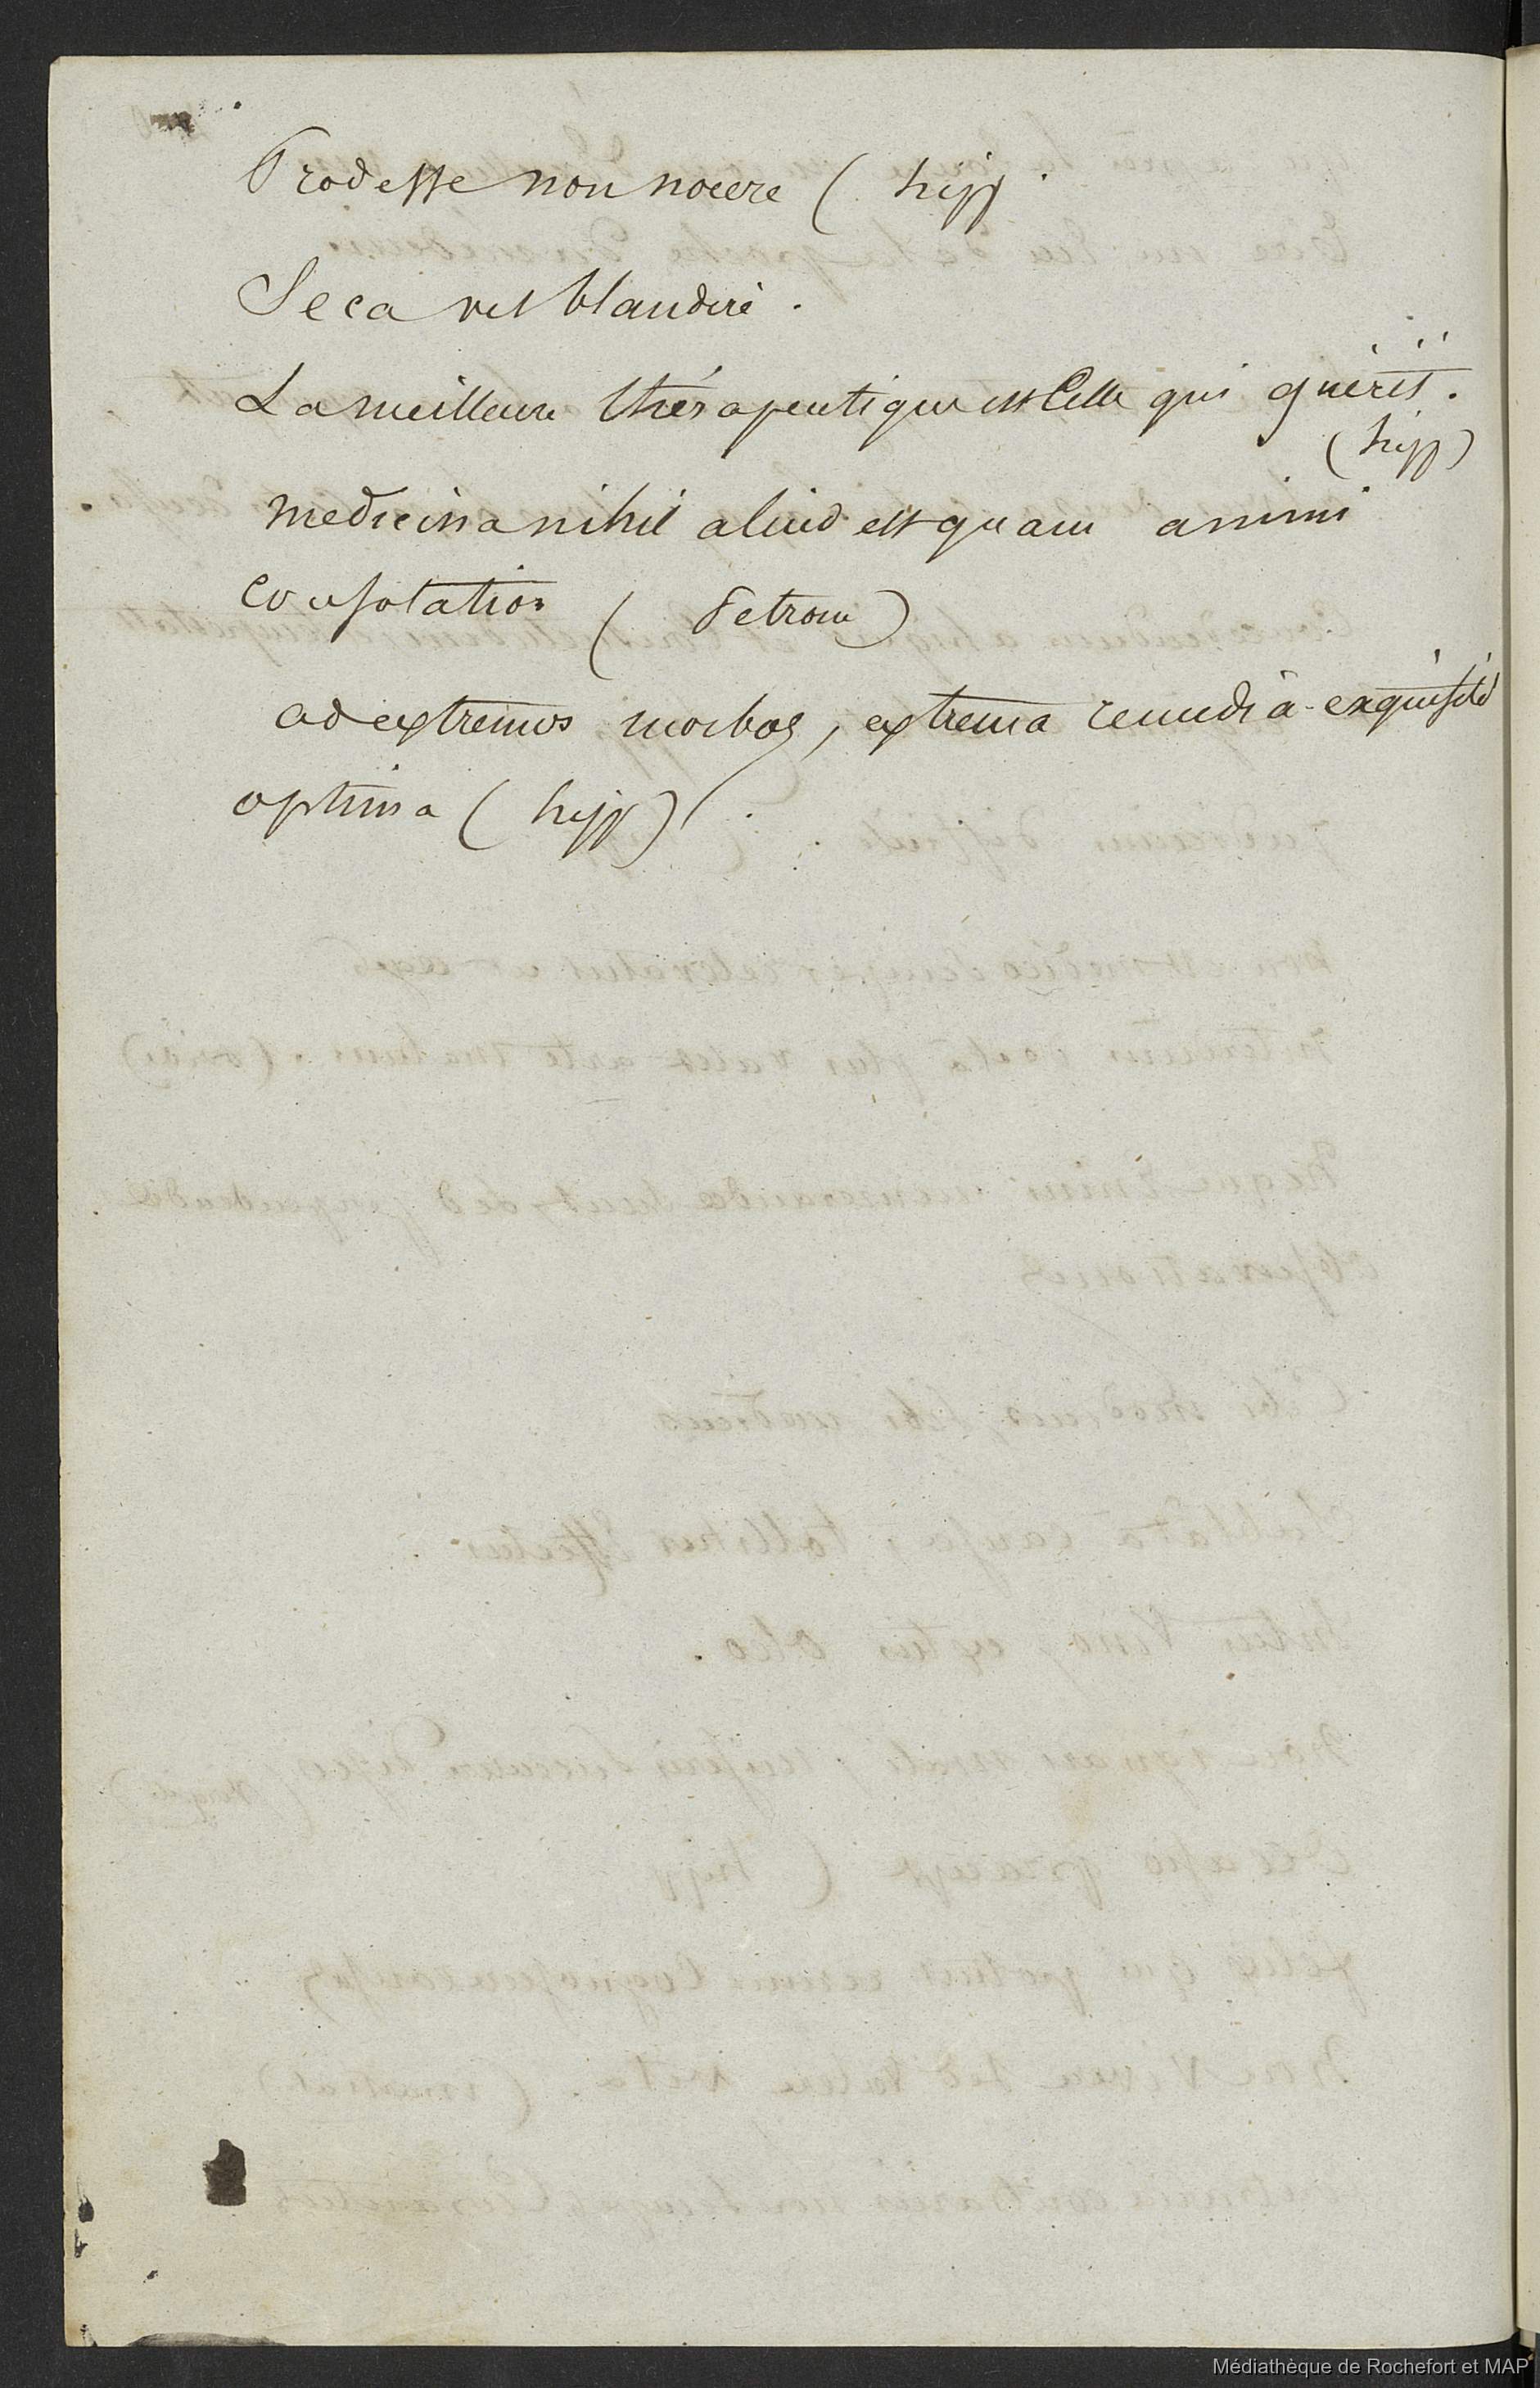 Prodesse non nocere ( hipp.
Seca vel blandire.
La meilleure thérapeutique est Celle qui guérit.
(hipp)
medicina nihil aliud est quam animi
consolatio ( Petron)
ad extremos morbos, extrema remedia exquisitè
optima ( hipp) .
Médiathèque de Rochefort et MAP